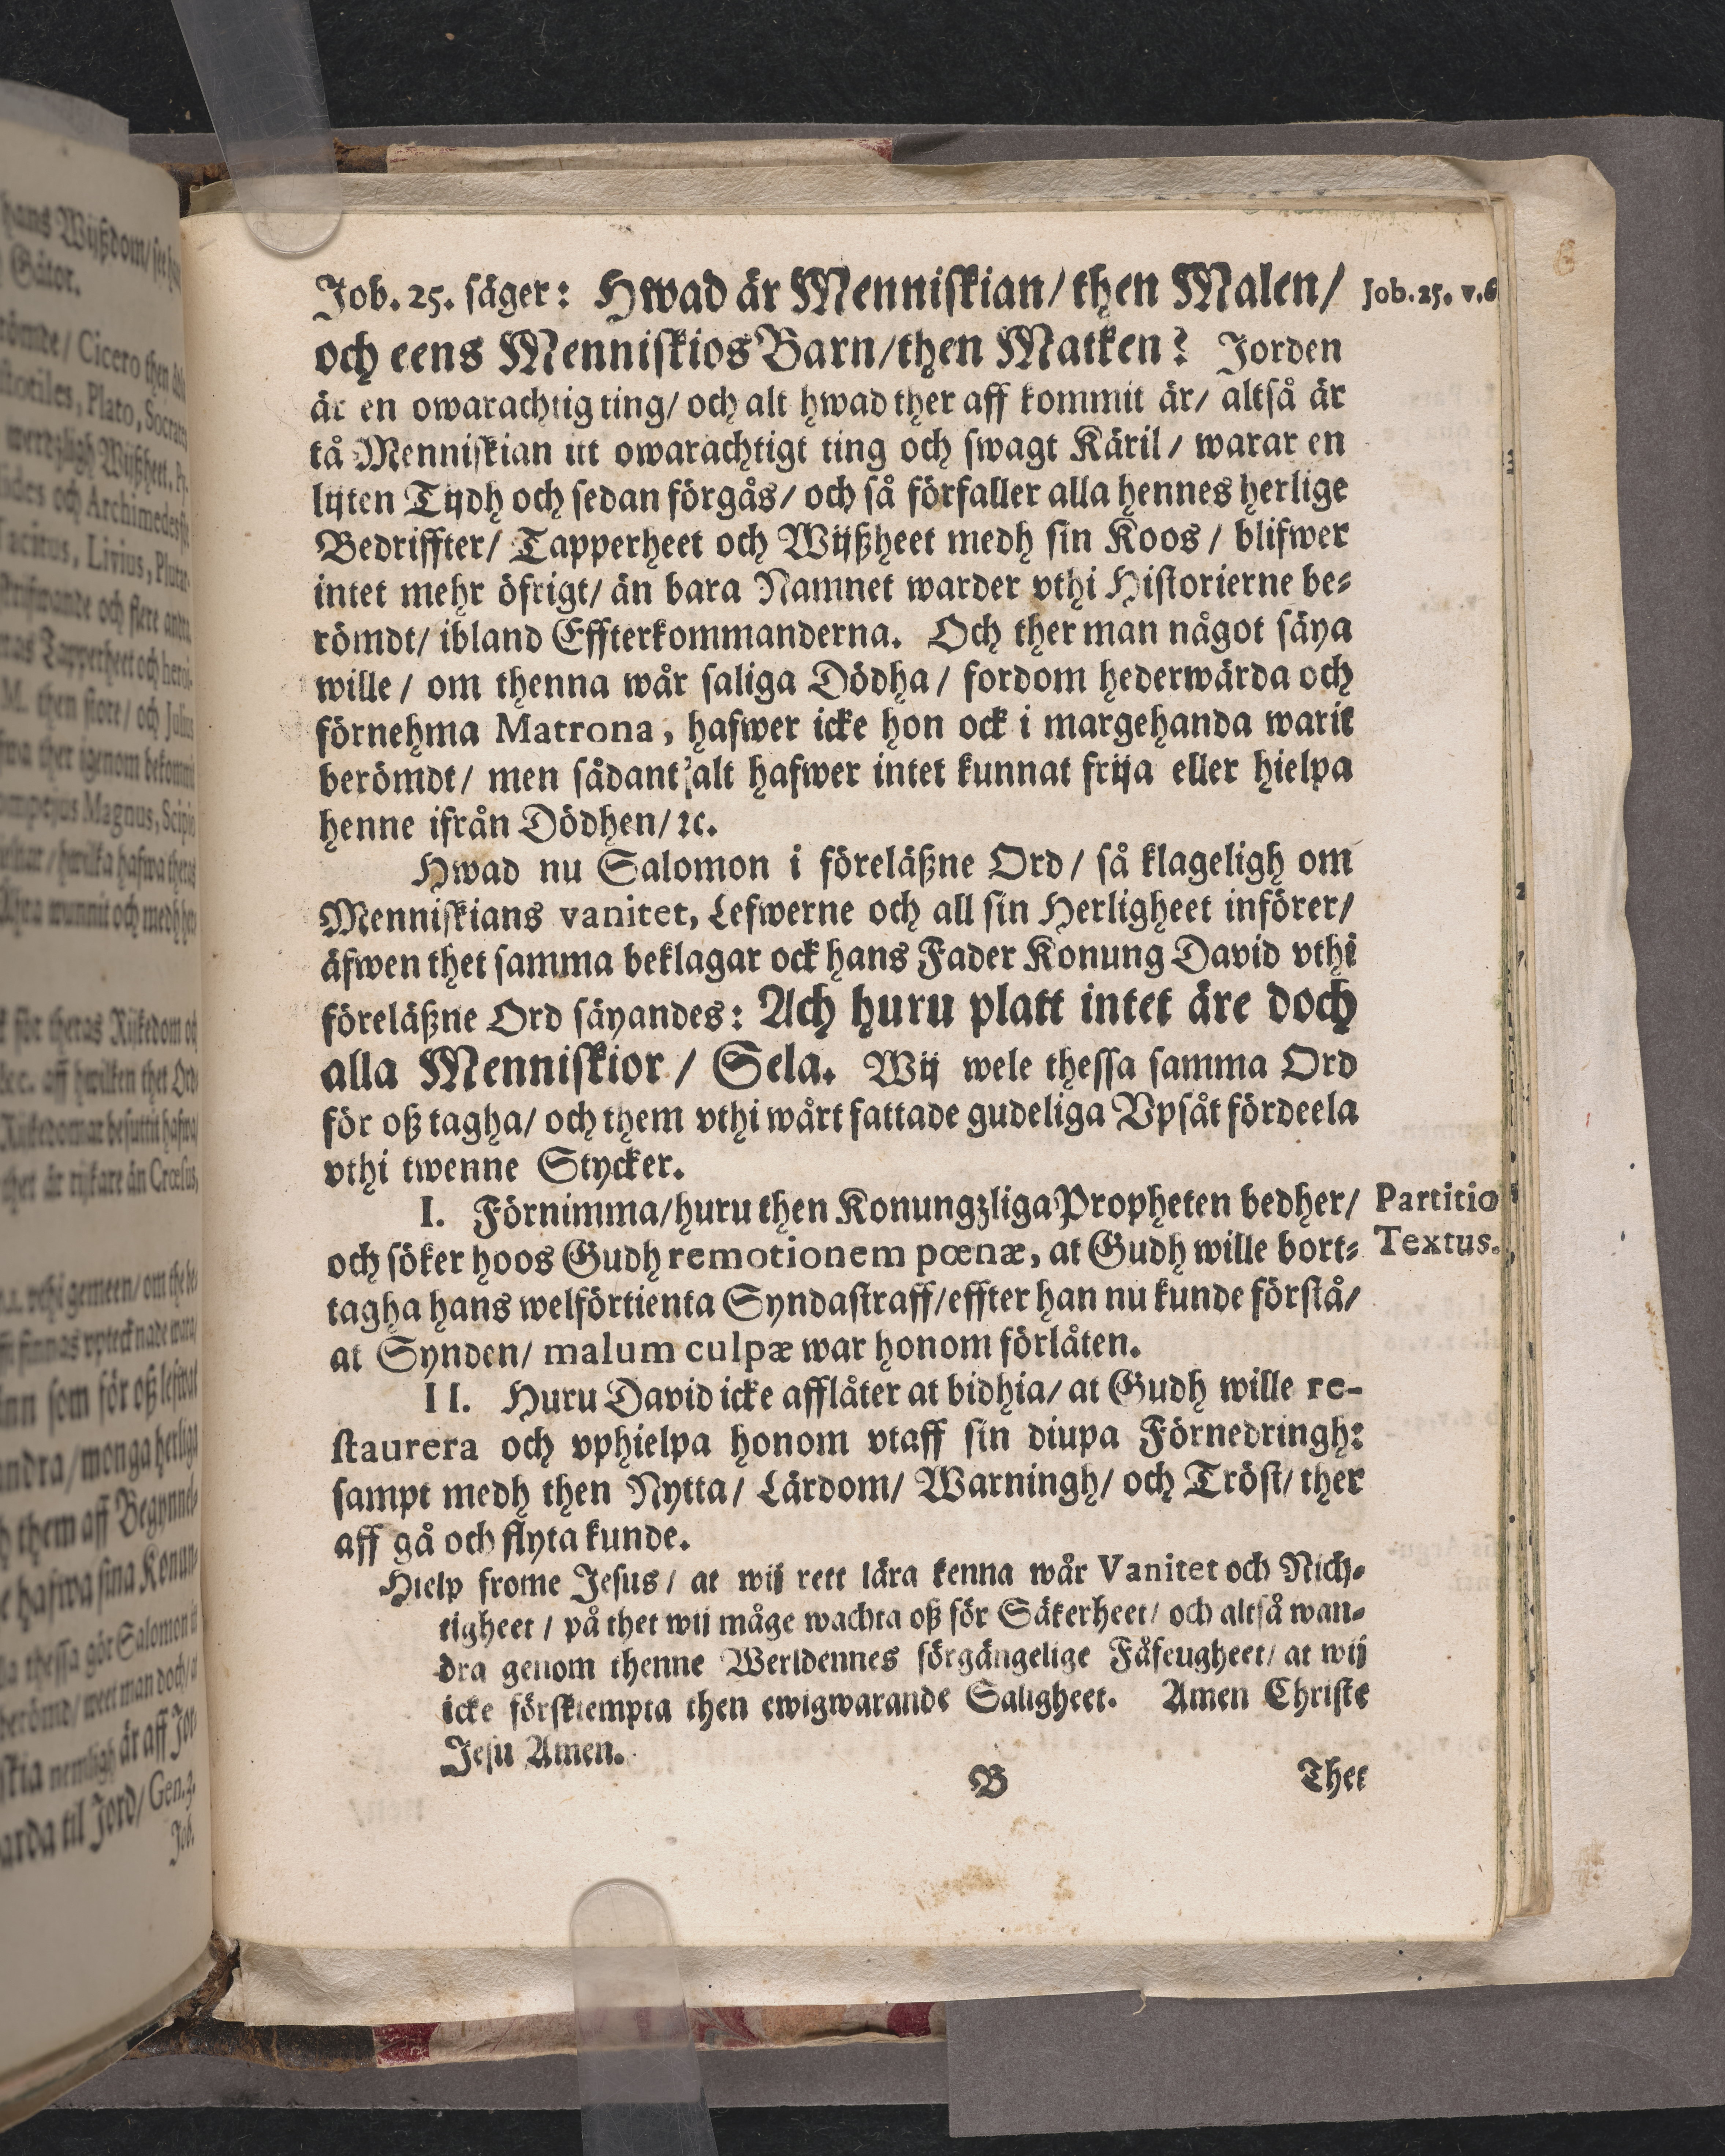 Job. 25. säger: Hwad är Menniskian/ then Malen/
Job. 25. v. 6
och eens Menniskios Barn/ then Matken? Jorden
är en owarachtig ting/ och alt hwad ther aff kommit är/ altså är
tå Menniskian itt owarachtigt ting och swagt Käril/ warar en
lijten Tijdh och sedan förgås/ och så förfaller alla hennes herlige
Bedriffter/ Tapperheet och Wijßheet medh sin Koos/ blifwer
intet mehr öfrigt/ än bara Namnet warder vthi Historierne be-
römdt/ ibland Effterkommanderna. Och ther man något säya
wille/ om thenna wår saliga Dödha/ fordom hederwärda och
förnehma Matrona, hafwer icke hon ock i margehanda warit
berömdt/ men sådant alt hafwer intet kunnat frija eller hielpa
henne ifrån Dödhen/ ꝛc.
Hwad nu Salomon i föreläßne Ord/ så klageligh om
Menniskians vanitet, Lefwerne och all sin Herligheet införer/
äfwen thet samma beklagar ock hans Fader Konung David vthi
föreläßne Ord säyandes: Ach huru platt intet äre doch
alla Menniskior/ Sela. Wij wele thessa samma Ord
för oß tagha/ och them vthi wårt fattade gudeliga Vpsåt fördeela
vthi twenne Stycker.
I. Förnimma/ huru then Konungzliga Propheten bedher/
Partitio
och söker hoos Gudh remotionem pœnæ, at Gudh wille bort-
Textus.
tagha hans welförtienta Syndastraff/ effter han nu kunde förstå/
at Synden/ malum culpæ war honom förlåten.
II. Huru David icke afflåter at bidhia/ at Gudh wille re-
staurera och vphielpa honom vtaff sin diupa Förnedringh:
sampt medh then Nytta/ Lärdom/ Warningh/ och Tröst/ ther
aff gå och flyta kunde.
Hielp frome Jesus/ at wij rett lära kenna wår Vanitet och Nich-
tigheet/ på thet wij måge wachta oß för Säkerheet/ och altså wan-
dra genom thenne Werldennes förgängelige Fåfeugheet/ at wij
icke försktempta then ewigwarande Saligheet. Amen Christe
Jesu Amen.
B
Thet